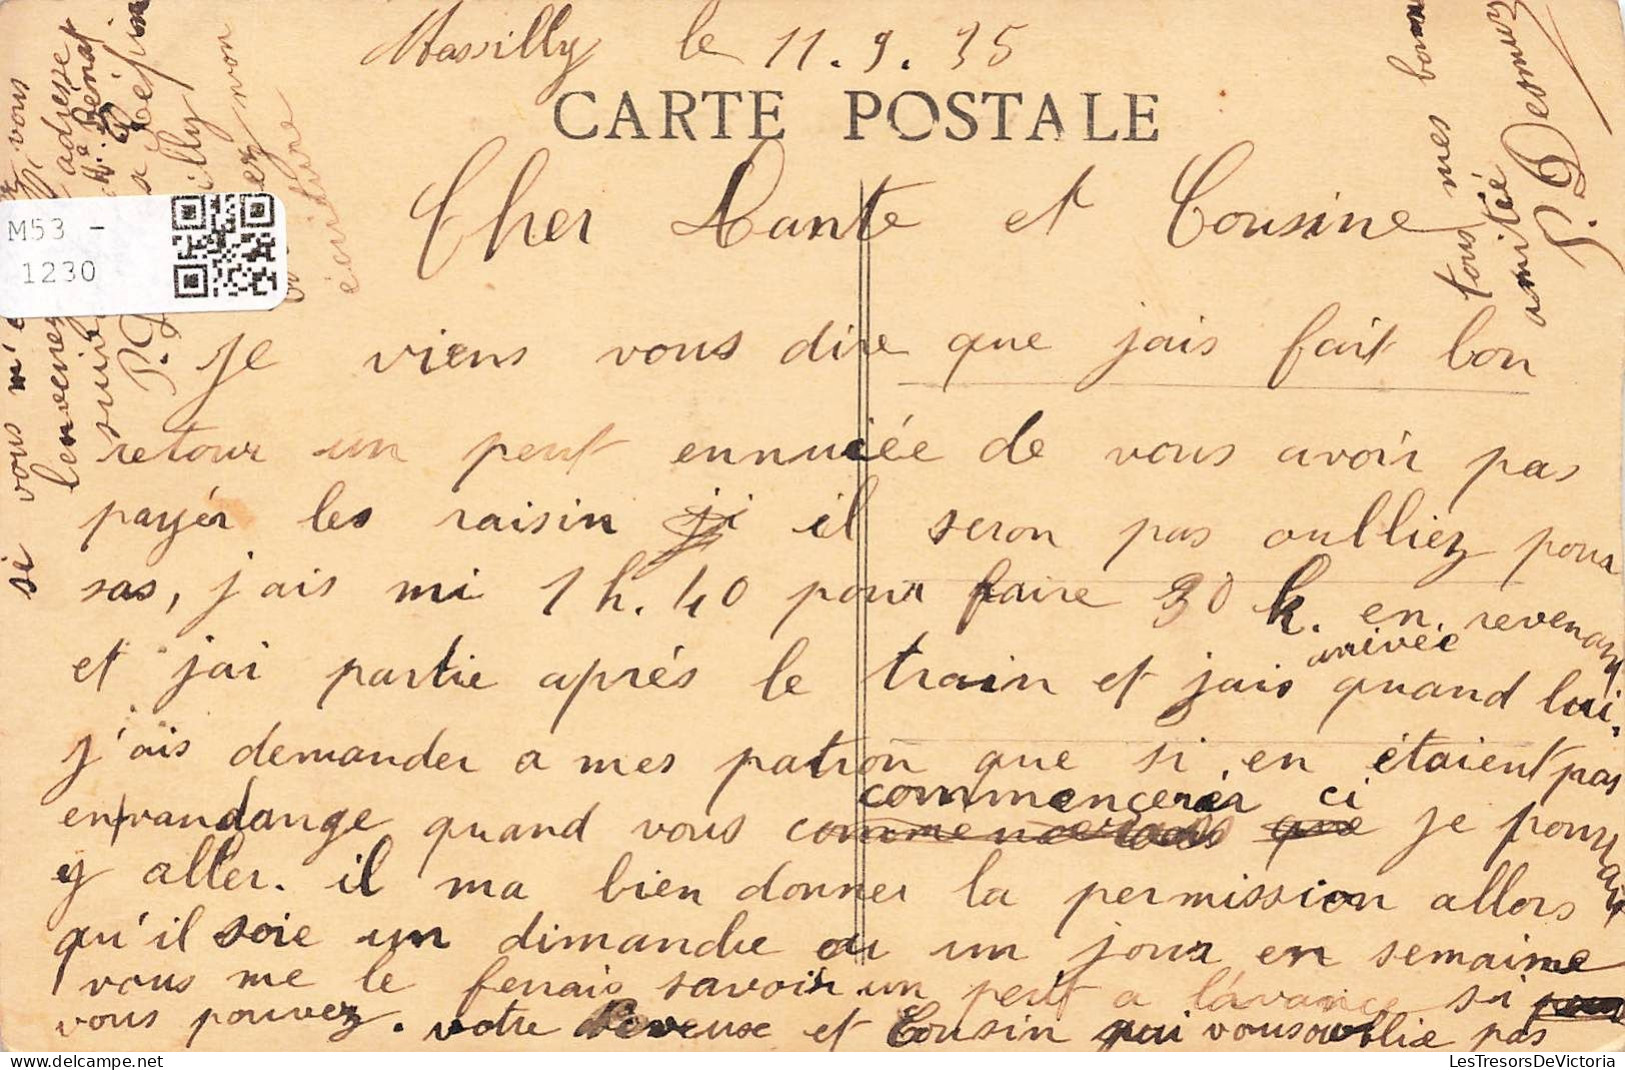 Massilly le 11.9.35
CARTE POSTALE
Cher Tante et Cousine
Je viens vous dire que jais fait bon
retour un peut ennuiée de vous avoir pas
payér les raisin il seron pas oulliez pour
sas, jais mi 1 h. 40 pour faire 30 k. en revenant
et jai partie aprés le train et jais arivée quand lui.
j'ais demander a mes patron que si en étaient pas
en vandange quand vous commençerér ci je pourrait
y aller. il ma bien donner la permission allors
qu'il soie un dimanche ou un jour en semaime
vous me le ferais savoir un peut a l'avance si
vous pouvez. votre Neveux et Cousin qui vous oublie pas
tous mes bonne
amitée
P. Desmurs
si vous m'
vous
adresse
suiv
P.
écriture
mon
M53 -
1230
LesTresorsDeVictoria.com